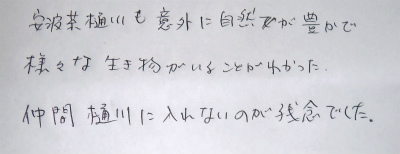 安波茶樋川も意外に自然が豊かで
様々な生き物がいることがわかった.
仲間樋川に入れないのが残念でした。